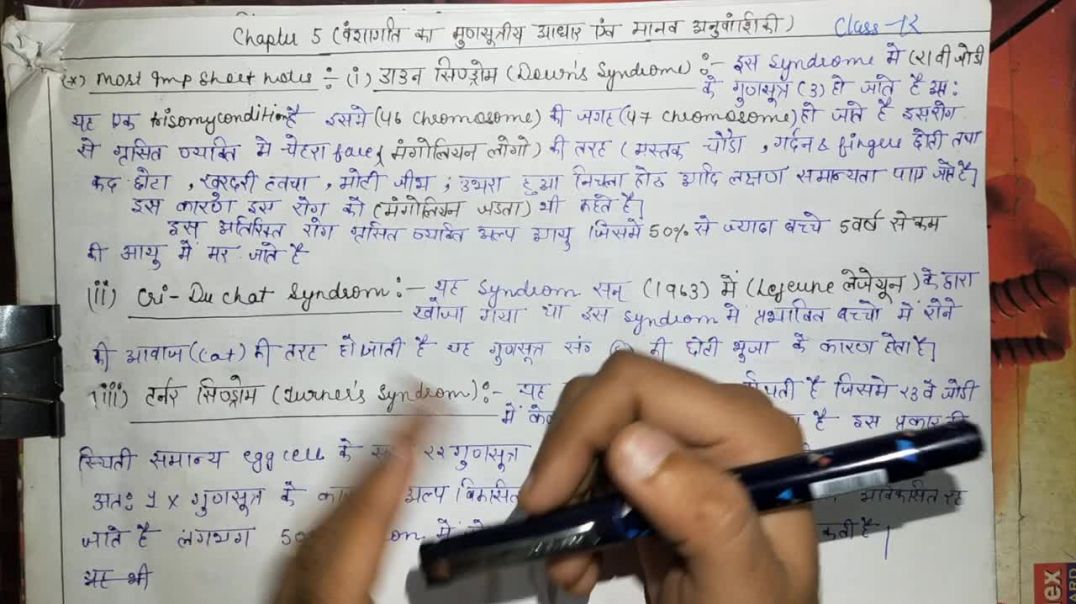 Chapter 5 (वंशागति का गुणसूत्रीय आधार एंव मानव अनुवांशिकी) Class-12
(*) Most Imp Short notes :- (i) डाउन सिण्ड्रोम (Down's Syndrome) :- इस Syndrome मे (21वी जोडी
के गुणसूत्र (3) हो जाते है अत:
यह एक trisomycondition है इसमे (46 Chromosome) की जगह (47 Chromosome) हो जाते है इसरोग
से ग्रसित व्यक्ति मे चेहरा face (मंगोलियन लोगो) की तरह (मस्तक चौडा, गर्दन & fingers छोटी तथा
कद छोटा, खुरदरी त्वचा, मोटी जीभ, उभरा हुआ निचला होठ आदि लक्षण समान्यता पाए जाते है।
इस कारण इस रोग को (मंगोलियन जडता) भी कहते है।
इस अतिरिक्त रोग ग्रसित व्यक्ति अल्प आयु जिसमें 50% से ज्यादा बच्चे 5वर्ष से कम
की आयु में मर जाते है
(ii) Cri-Du chat Syndrom :- यह Syndrom सन् (1963) में (Lejeune लेजेयून) के द्वारा
खोजा गया था इस Syndrom में प्रभावित बच्चो में रोने
की आवाज (Cat) की तरह हो जाती है यह गुणसूत्र सं० की छोटी भुजा के कारण होता है।
(iii) टर्नर सिण्ड्रोम (Turner's Syndrom) :- यह है जिसमे 23 वे जोडी
में है इस प्रकार की
स्थिती समान्य egg cell के 22 गुणसूत्र
अत: 1 X गुणसूत्र के अल्प विकसित अविकसित रह
जाते है लगभग
यह भी
ex